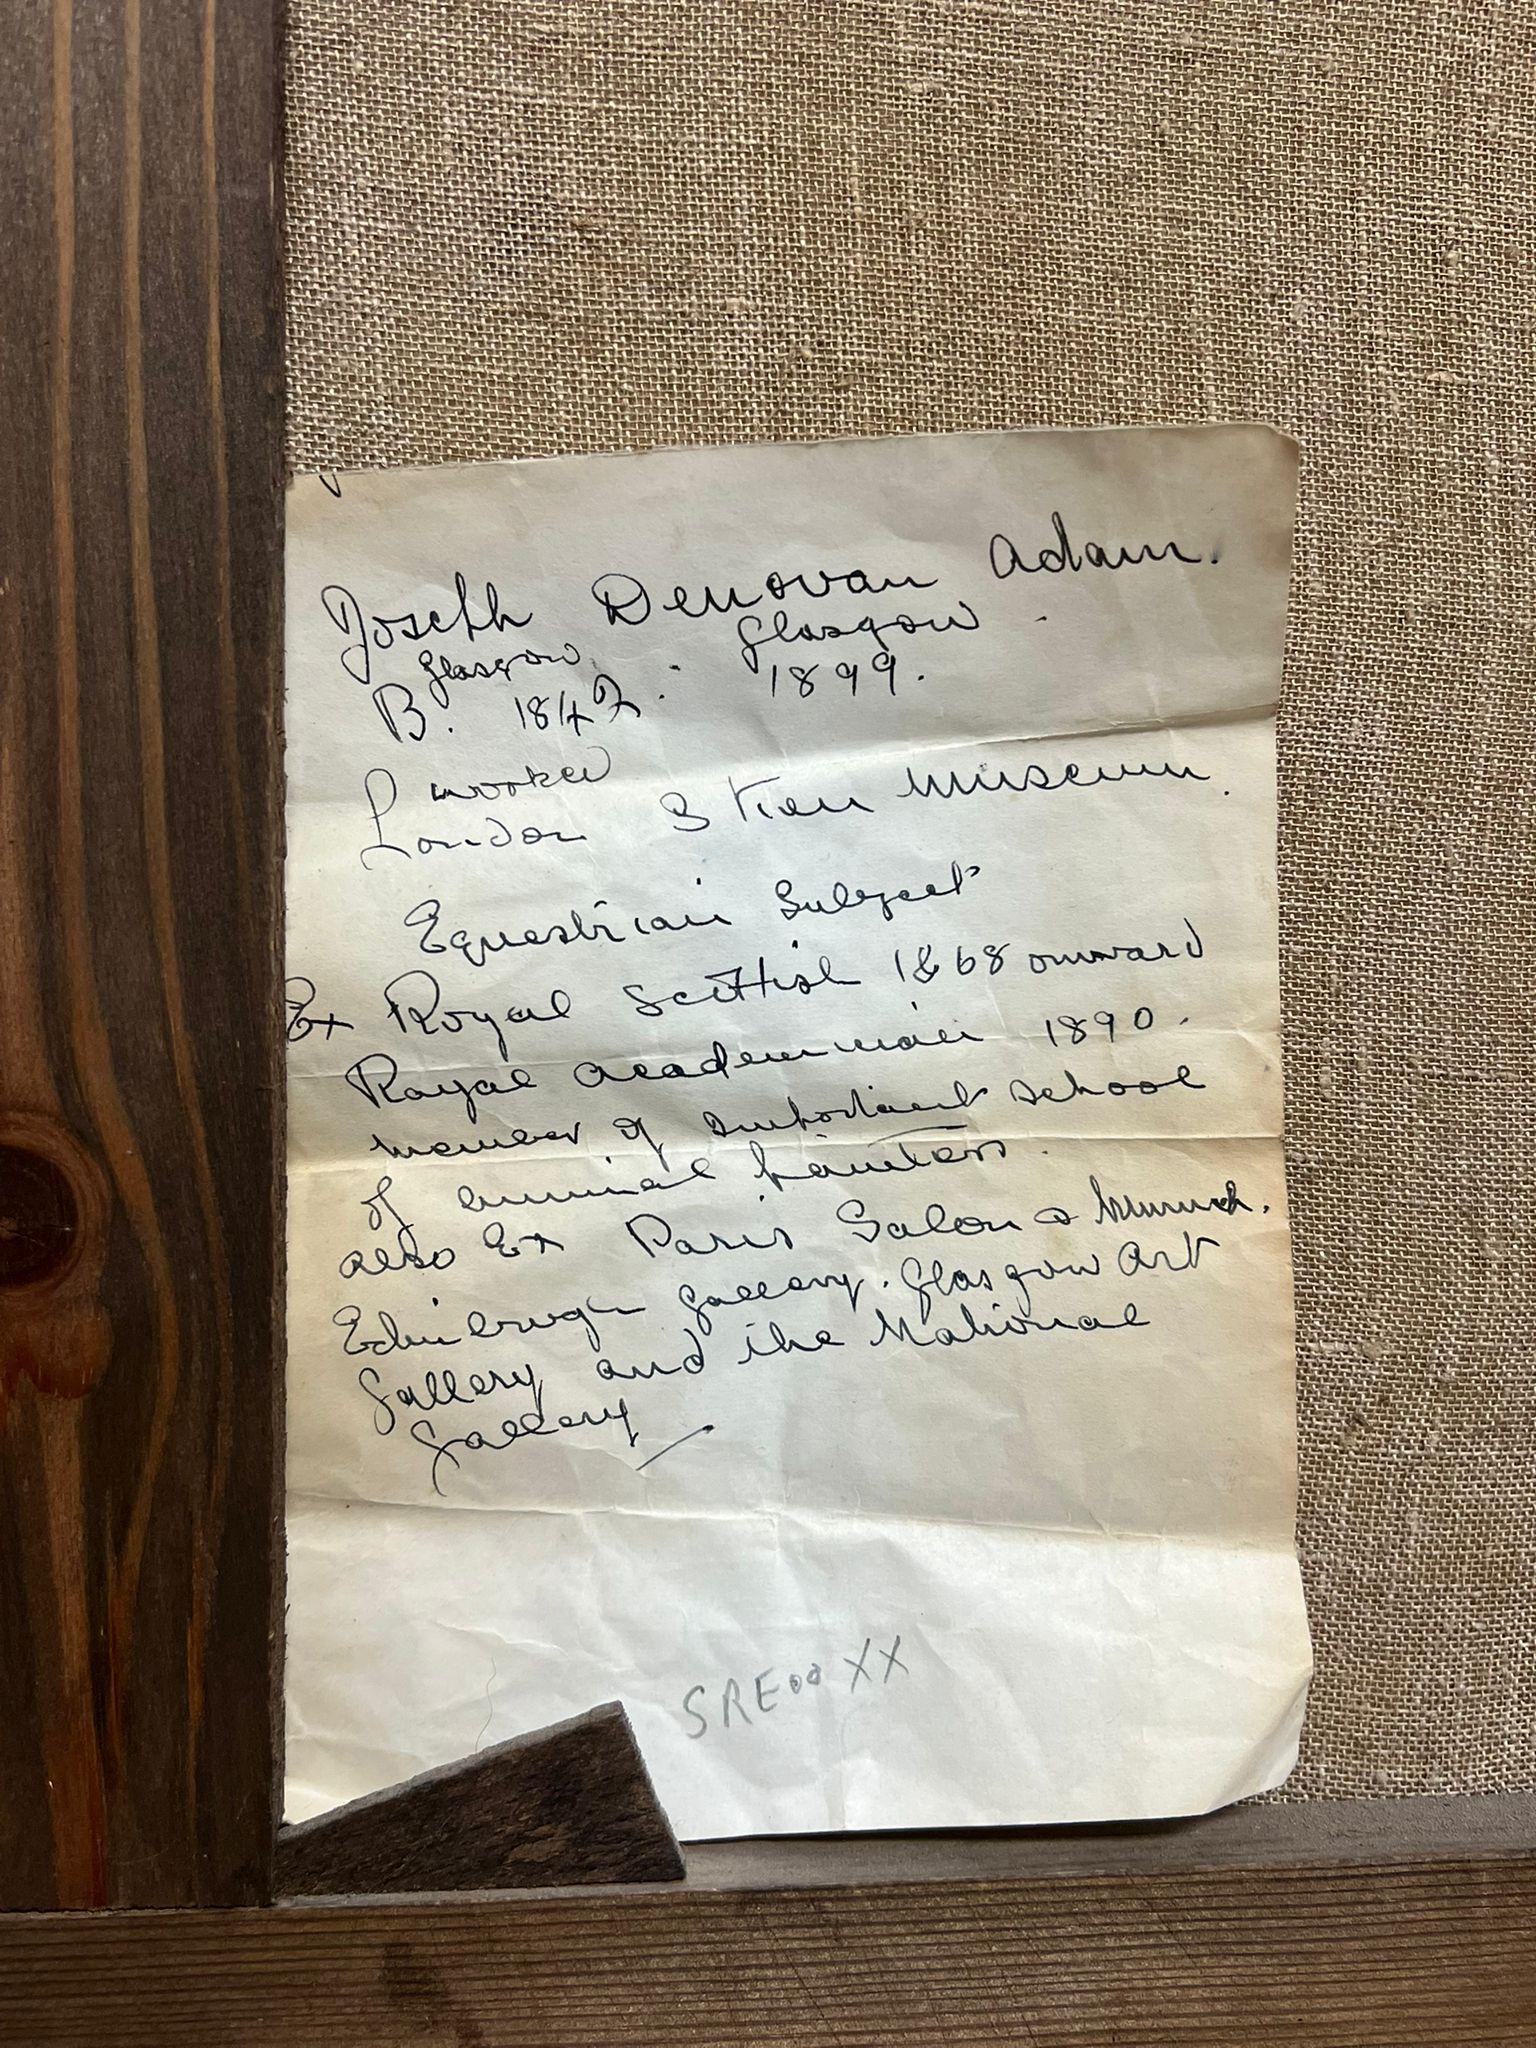 Joseph Denovan Adam.
Glasgow Glasgow
B. 1842. 1899.
worked
London Museum.
Equestrian Subject
Ex Royal Scottish 1868 onward
Royal academician 1890.
member of important school
of animal painters.
also Ex Paris Salon & Munich.
Edinburgh gallery. Glasgow Art
Gallery and the National
Gallery
SRE00XX